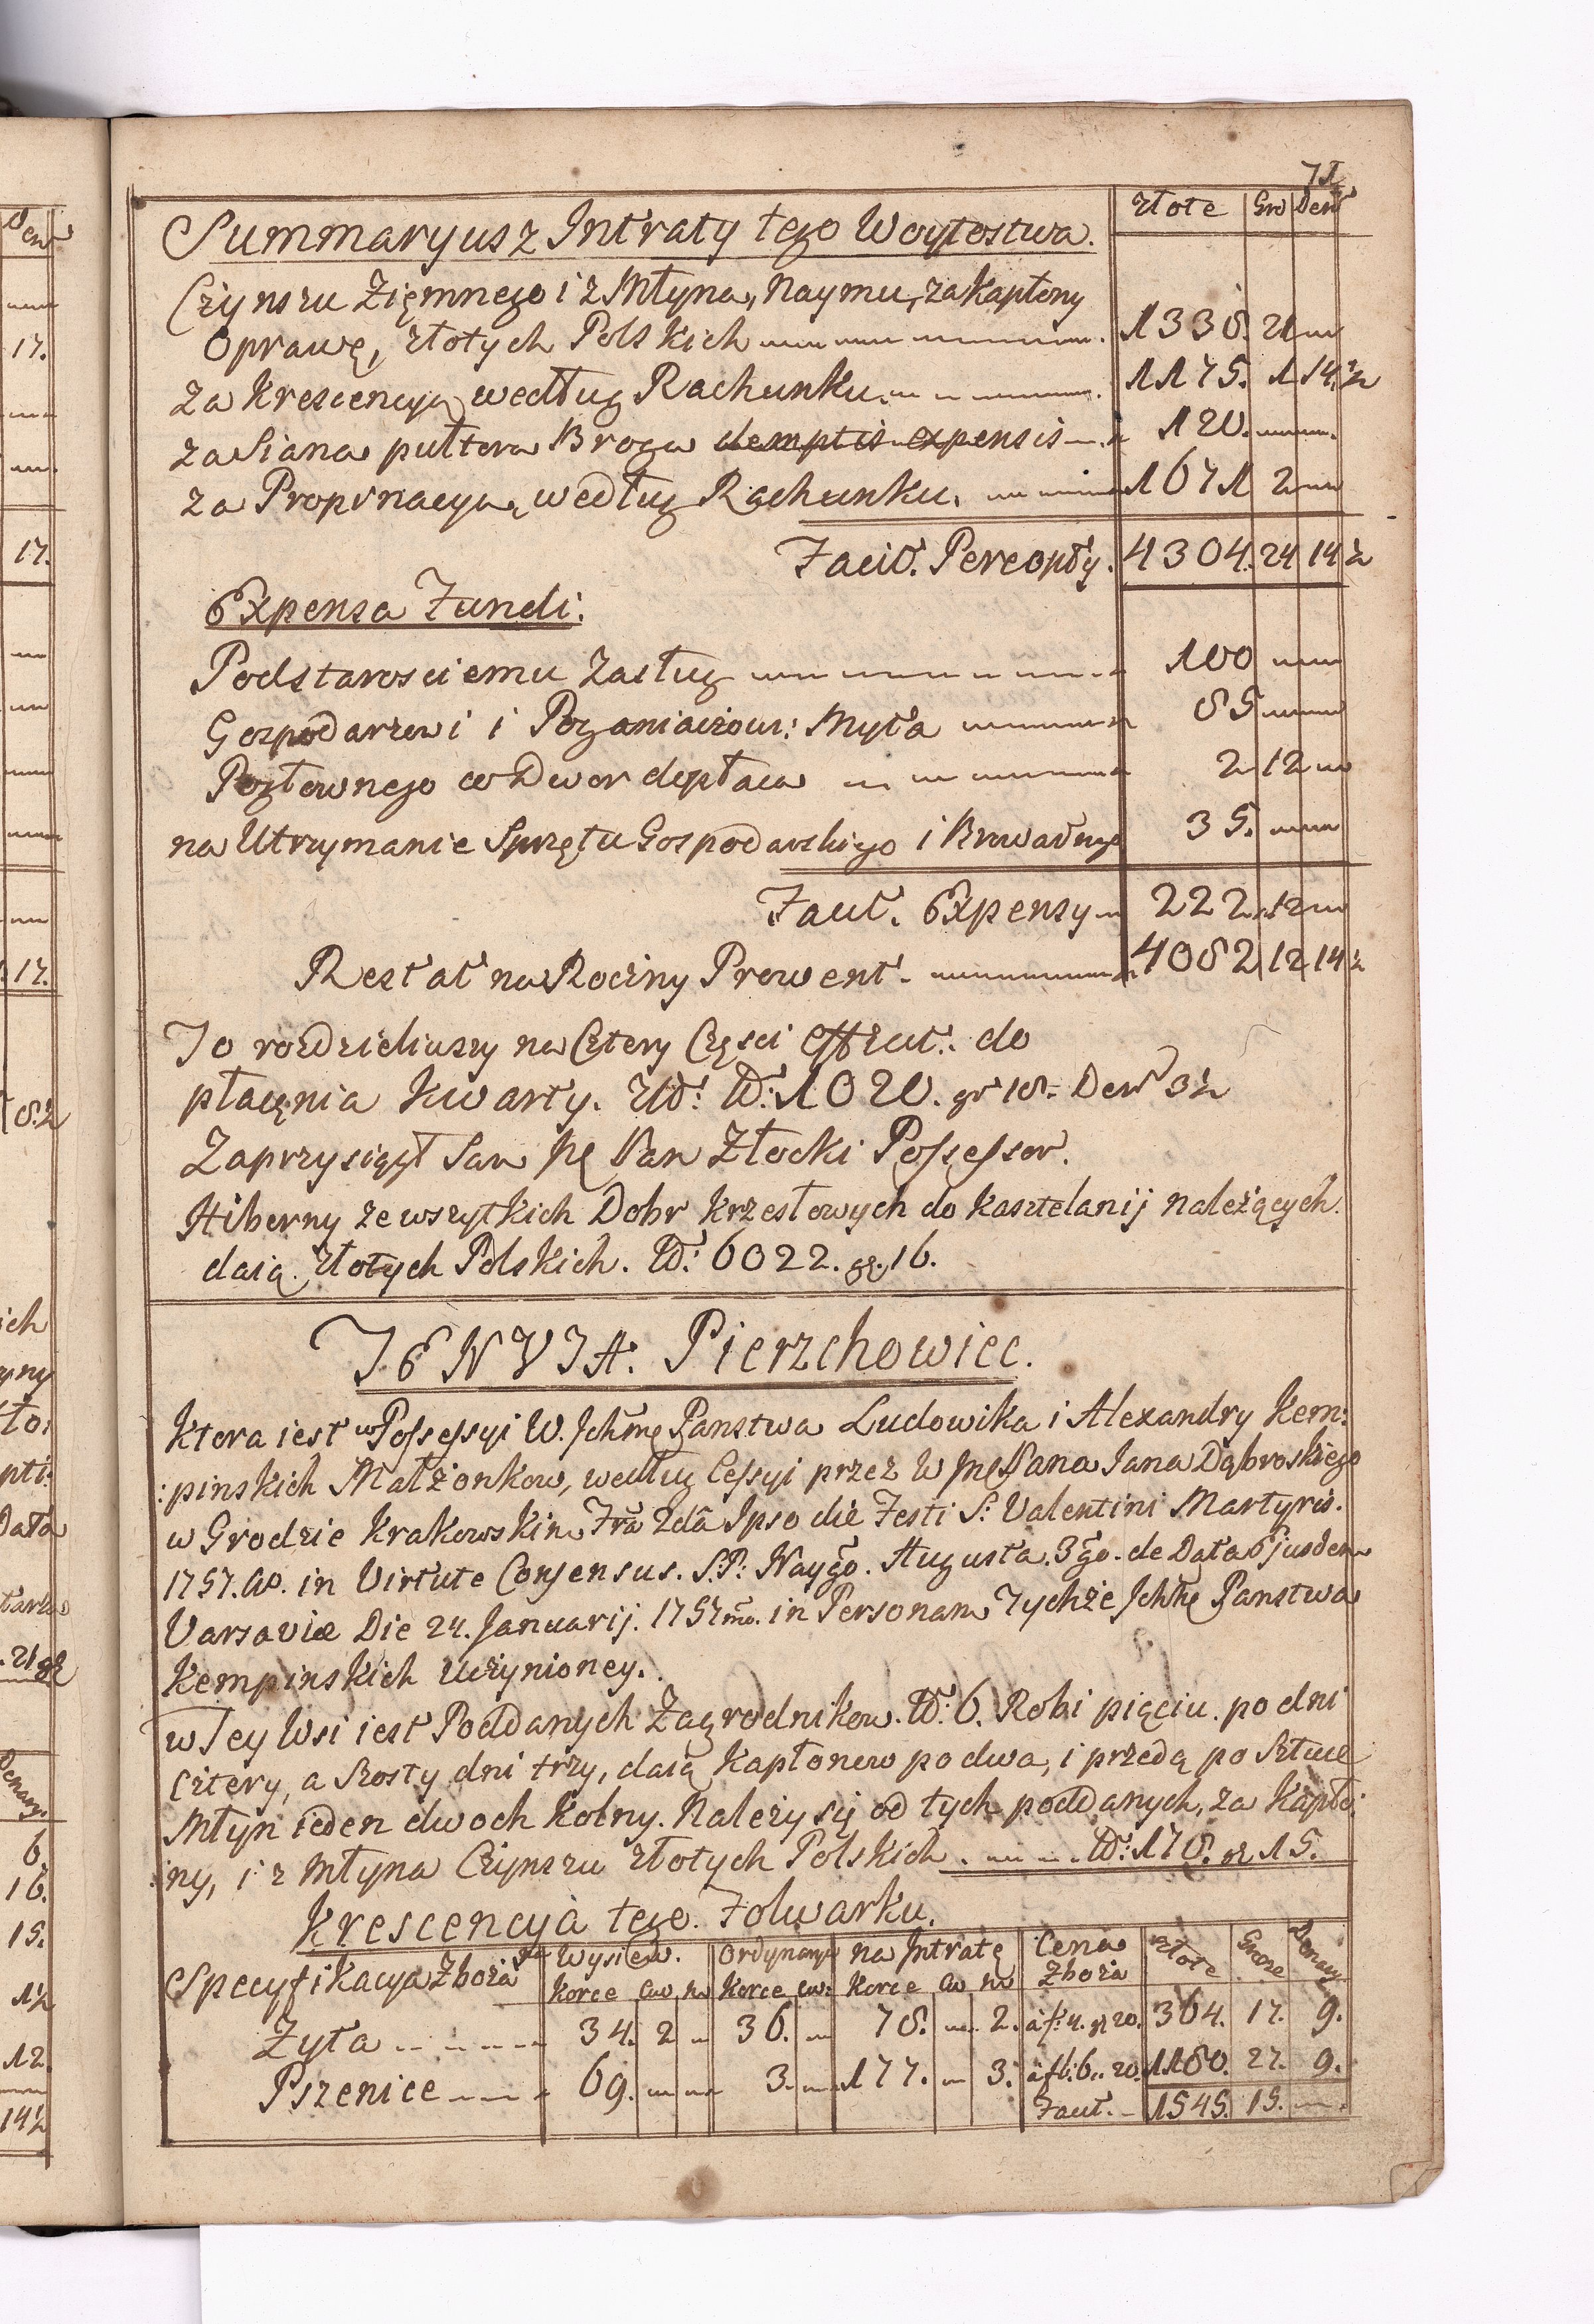 71
Summaryusz Intraty tego Woytostwa. złote Gro Den
Czynszu Zięmnego i z Młyna, Naymu, za Kapłony
Oprawę, złotych Polskich 1338. 21
za Krescencyą według Rachunku. 1175. 1 14½
za Siana pułtora Broga demptis expensis 120.
za Propinacyą, według Rachunku. 1671 2
Facit. Percepty. 4304. 24 14½
Expensa Fundi.
Podstarosciemu Zasług 100
Gospodarzowi i Poganiaczowi: Myta 85
Pogłownego ze Dwor depłaca 2 12
na Utrzymanie Sprzętu Gospodarskiego i Browarnego 35.
Facit. Expensy 222. 12
Restat na Roczny Prowent. 4082 12 14½
To rozdzieliwszy na Cztery Częsci Effrut. do
płacęnia Kwarty. Złt: No: 1020. gr 18. Den 3½
Zaprzysiągł Sam JP Pan Złocki Possessor.
Hiberny ze wszytkich Dobr Krzesłowych do Kasztelanij należących.
daią. złotych Polskich. No: 6022. gr. 16.
TENUTA: Pierzchowiec.
Ktora iest w Possessyi W. Jchmę Panstwa Ludowika i Alexandry Kem:
:pinskich Małżonkow, według Cessyi przez W JmęPana Jana Dąbroskiego
w Grodzie Krakowskim Fra 2da Ipso die Festi S: Valentini Martyris.
1757. ao. in Virtute Consensus. S:P: Naygo. Augusta. 3go. de Data Ejusdem
Varsaviæ Die 24. Januarij. 1757mo. in Personam Tychże Jchmę Panstwa
Kempinskich uczynioney.
w Tey Wsi iest Poddanych Zagrodnikow. No: 6. Robi pięciu. po dni
Cztery, a Szosty dni trzy, daią Kapłonow po dwa, i przedą po Sztuce
Młyn ieden dwoch Kolny. Należy się od tych poddanych, za Kapło:
:ny, i z Młyna Czynszu złotych Polskich. No: 178. gr 15.
Krescencya tego. Folwarku.
Specyfikacya Zboża Wysiew. Ordynarya na Intratę Cena Zboża złote Grosze Denary
Korce Cw. No Korce Cw: Korce Cw No
Żyta 34. 2 36. 78. 2. á f: 4. gr 20. 364. 17. 9.
Pszenice 69. 3. 177. 3. á fl: 6. 20. 1180. 27. 9.
Facit. 1545. 15.